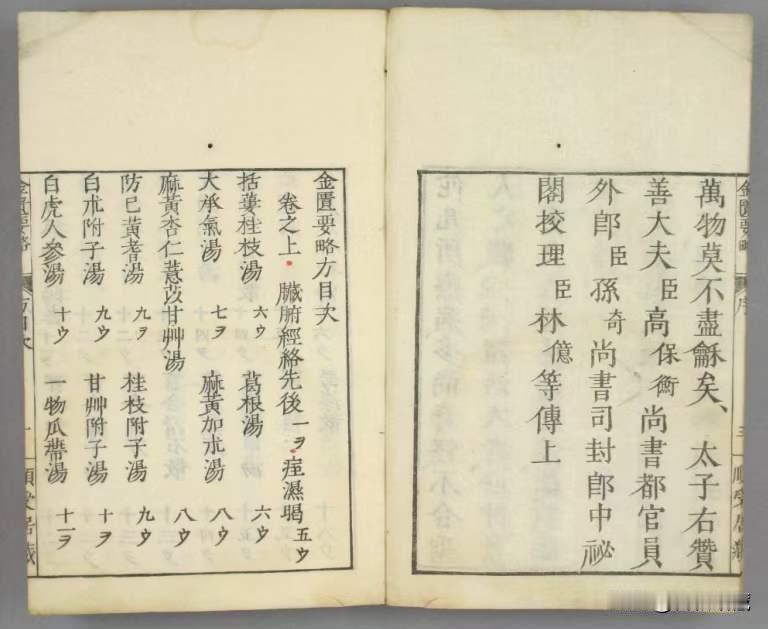 萬物莫不盡龢矣、太子右贊
善大夫臣高保衡尚書都官員
外郎臣孫奇尚書司封郎中祕
閣挍理臣林億等傳上
金匱要略方目次
卷之上・臓腑經絡先後一ヲ・痓濕暍五ウ
括蔞桂枝湯 六ウ 葛根湯 六ウ
大承氣湯 七ヲ 麻黃加朮湯 八ウ
麻黃杏仁薏苡甘艸湯 八ウ
防已黃耆湯 九ヲ 桂枝附子湯 九ウ
白朮附子湯 九ウ 甘艸附子湯 十ヲ
白虎人參湯 十ウ 一物瓜蒂湯 十一ヲ
金匱要略 方目次 一